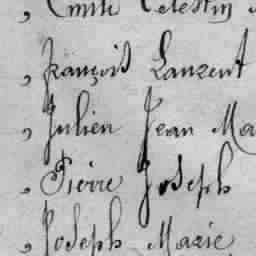 , Emile Celestin
, François Laurent
, Julien Jean Ma
, Pierre Joseph
, Joseph Marie